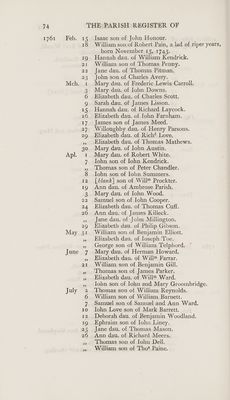 74 THE PARISH REGISTER OF
1761 Feb. 15 Isaac son of John Honour.
18 William son of Robert Pain, a lad of riper years,
born November 15, 1745.
19 Hannah dau. of William Kendrick.
21 William son of Thomas Penny.
22 Jane dau. of Thomas Pitman.
23 John son of Charles Avery.
Mch. 1 Mary dau. of Frederic Lewis Carroll.
3 Mary dau. of John Downs.
6 Elizabeth dau. of Charles Scott.
9 Sarah dau. of James Lisson.
15 Hannah dau. of Richard Laycock.
16 Elizabeth dau. of John Farnham.
17 James son of James Meed.
27 Willoughby dau. of Henry Parsons.
29 Elizabeth dau. of Richd Lore.
„ Elizabeth dau. of Thomas Mathews.
30 Mary dau. of John Austin.
Apl. 1 Mary dau. of Robert White.
7 John son of John Kendrick.
„ Thomas son of Peter Chandler.
8 John son of John Summers.
12 [blank] son of Willm Prockter.
19 Ann dau. of Ambrose Parish.
3 Mary dau. of John Wood.
22 Samuel son of John Cooper.
24 Elizabeth dau. of Thomas Cuff.
26 Ann dau. of James Killeck.
„ Jane dau. of John Millington.
29 Elizabeth dau. of Philip Gibson.
May 31 William son of Benjamin Elliott.
„ Elizabeth dau. of Joseph Toe.
„ George son of William Telphord.
June 7 Mary dau. of Herman Howard.
„ Elizabeth dau. of Willm Farrar.
21 William son of Benjamin Gill.
„ Thomas son of James Parker.
„ Elizabeth dau. of Willm Ward.
„ John son of John and Mary Groombridge.
July 2 Thomas son of William Reynolds.
6 William son of William Barnett.
7 Samuel son of Samuel and Ann Ward.
10 John Love son of Mark Barrett.
12 Deborah dau. of Benjamin Woodland.
19 Ephraim son of John Liney.
25 Jane dau. of Thomas Mason.
26 Ann dau. of Richard Meers.
„ Thomas son of John Dell.
„ William son of Thos Paine.